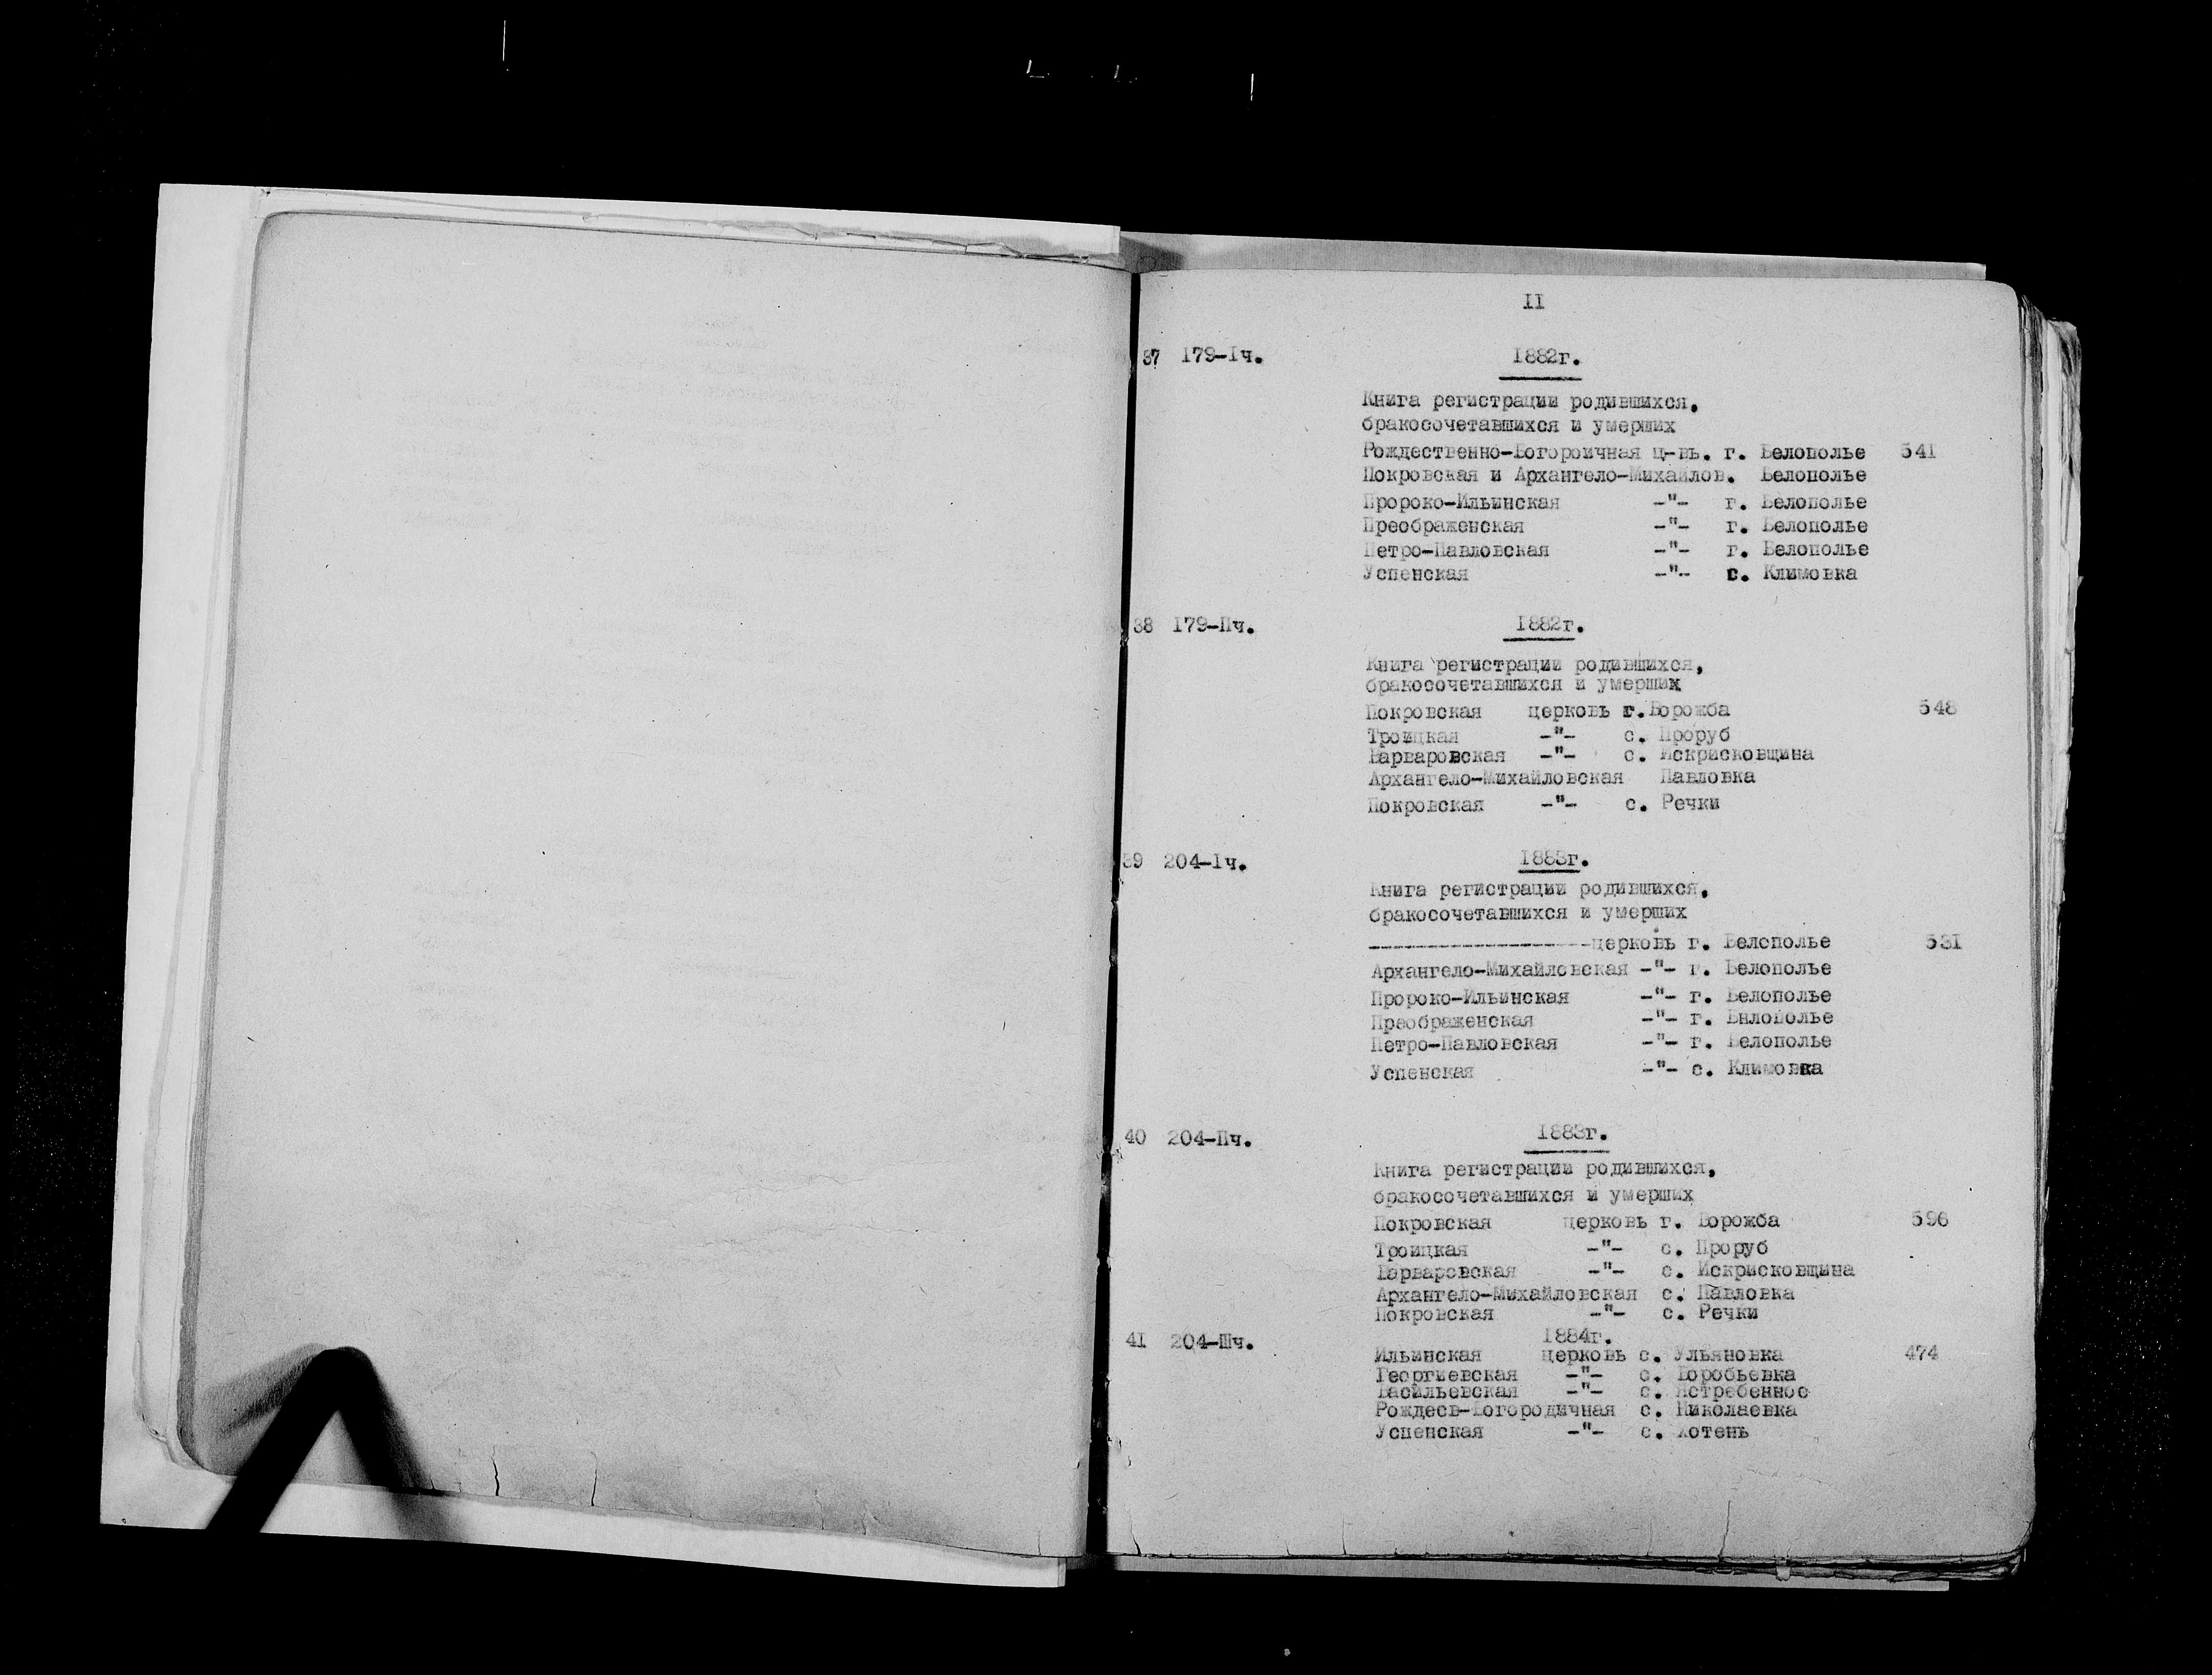 II
37 179-Iч. 1882г.
Книга регистрации родившихся,
бракосочетавшихся и умерших
Рождественно-Богороичная ц-вь. г. Белополье 541
Покровская и Архангело-Михайлов. Белополье
Пророко-Ильинская -"- г. Белополье
Преображенская -"- г. Белополье
Петро-Павловская -"- г. Белополье
Успенская -"- с. Климовка
38 179-Пч. 1882г.
Книга регистрации родившихся,
бракосочетавшихся и умерших
Покровская церковь г.Ворожба 548
Троицкая -"- с. Проруб
Варваровская -"- с. Искрисковщина
Архангело-Михайловская Павловка
Покровская -"- с. Речки
39 204-Iч. 1883г.
Книга регистрации родившихся,
бракосочетавшихся и умерших
--------------------церковь г. Белополье 531
Архангело-Михайловская -"- г. Белополье
Пророко-Ильинская -"- г. Белополье
Преображенская -"- г. Билополье
Петро-Павловская -"- г. Белополье
Успенская -"- с. Климовка
40 204-Пч. 1883г.
Книга регистрации родившихся,
бракосочетавшихся и умерших
Покровская церковь г. Ворожба 596
Троицкая -"- с. Проруб
Варваровская -"- с. Искрисковщина
Архангело-Михайловская с. Павловка
Покровская -"- с. Речки
41 204-Шч. 1884г.
Ильинская церковь с. Ульяновка 474
Георгиевская -"- с. Воробьевка
Васильевская -"- с. Ястребенное
Рождесв-Богородичная с. Николаевка
Успенская -"- с. Хотень